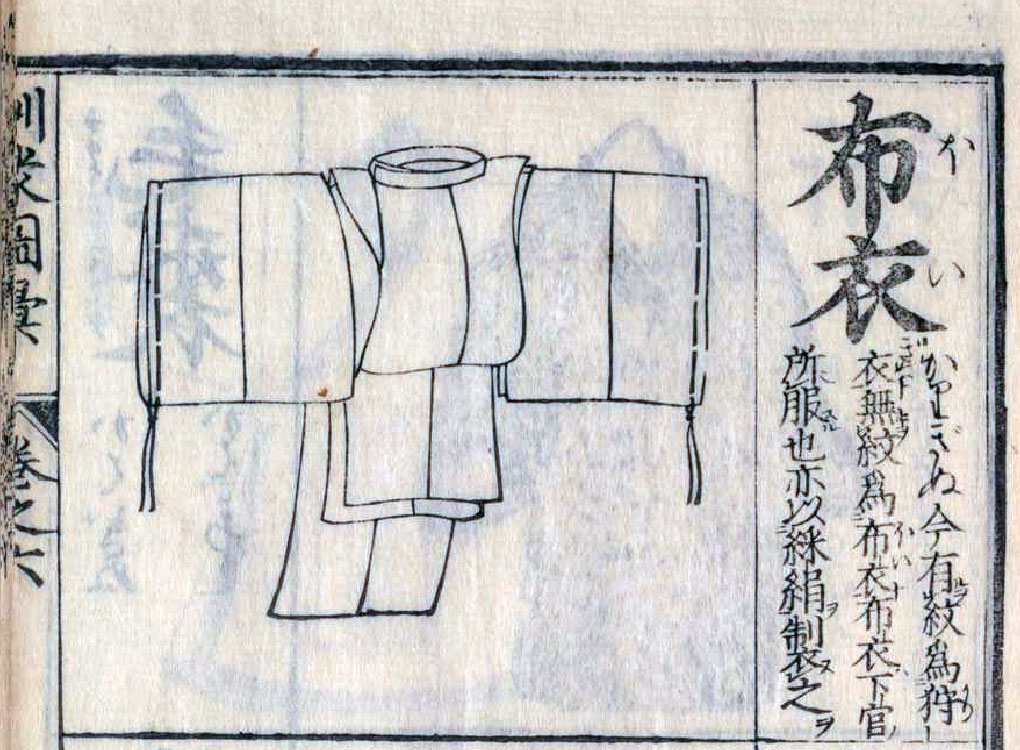 布衣
ほい
かりぎぬ今有紋為狩
衣無紋為布衣布衣下官
所服也亦以綵絹制衣之
訓蒙圖彙
巻之六